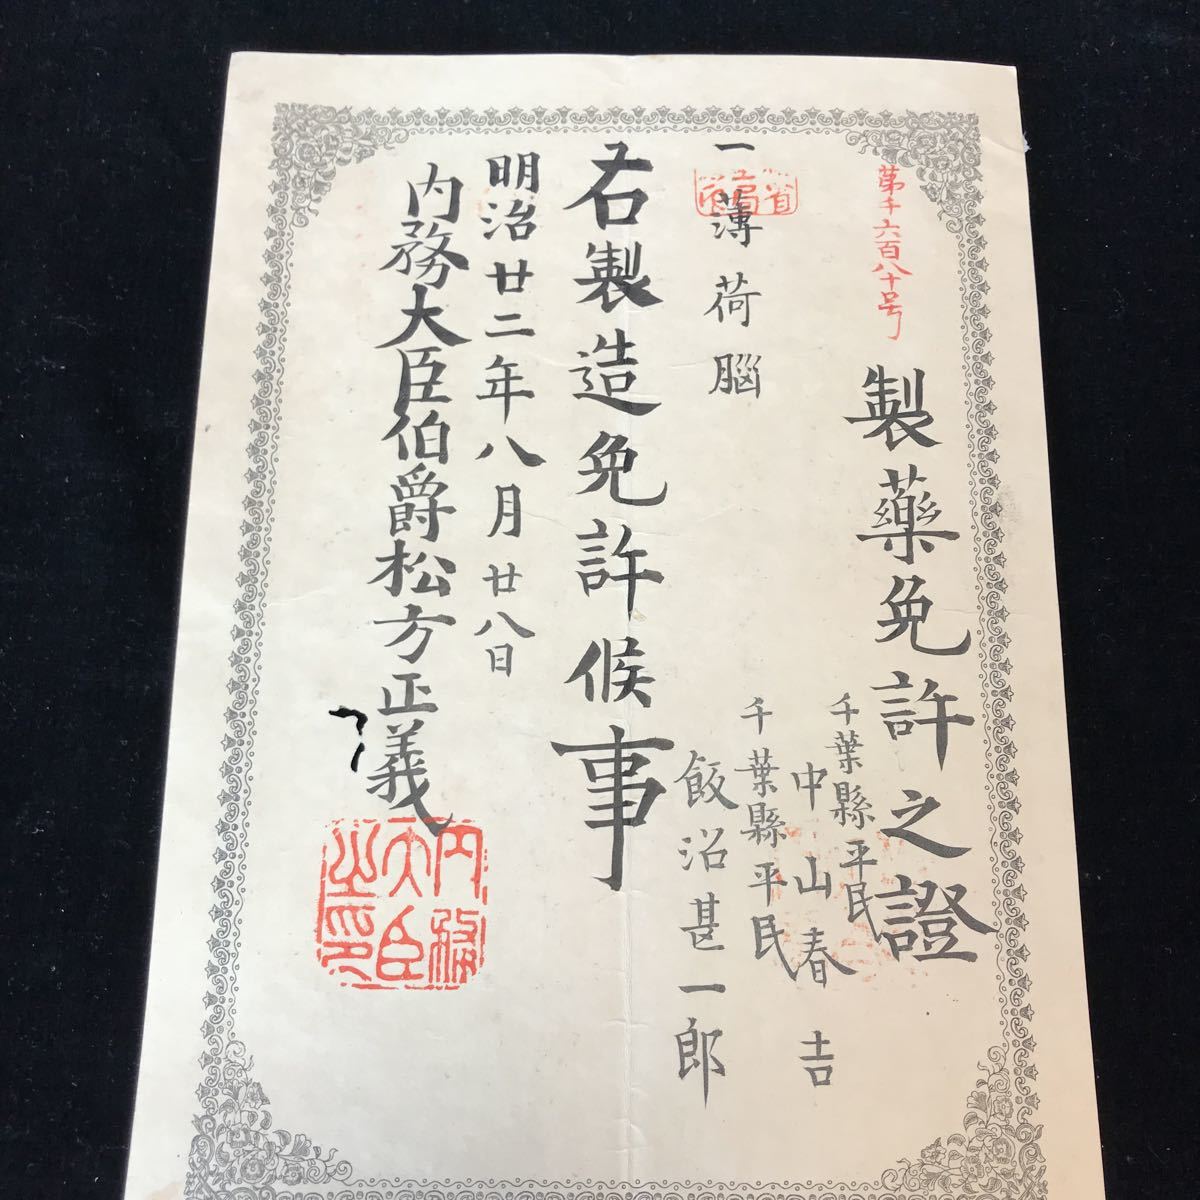 第千六百八十号
製藥免許之證
千葉縣平民
中山春吉
千葉縣平民
飯沼甚一郎
一薄荷腦
右製造免許候事
明治廿二年八月廿八日
内務大臣伯爵松方正義
内務
大臣
之印